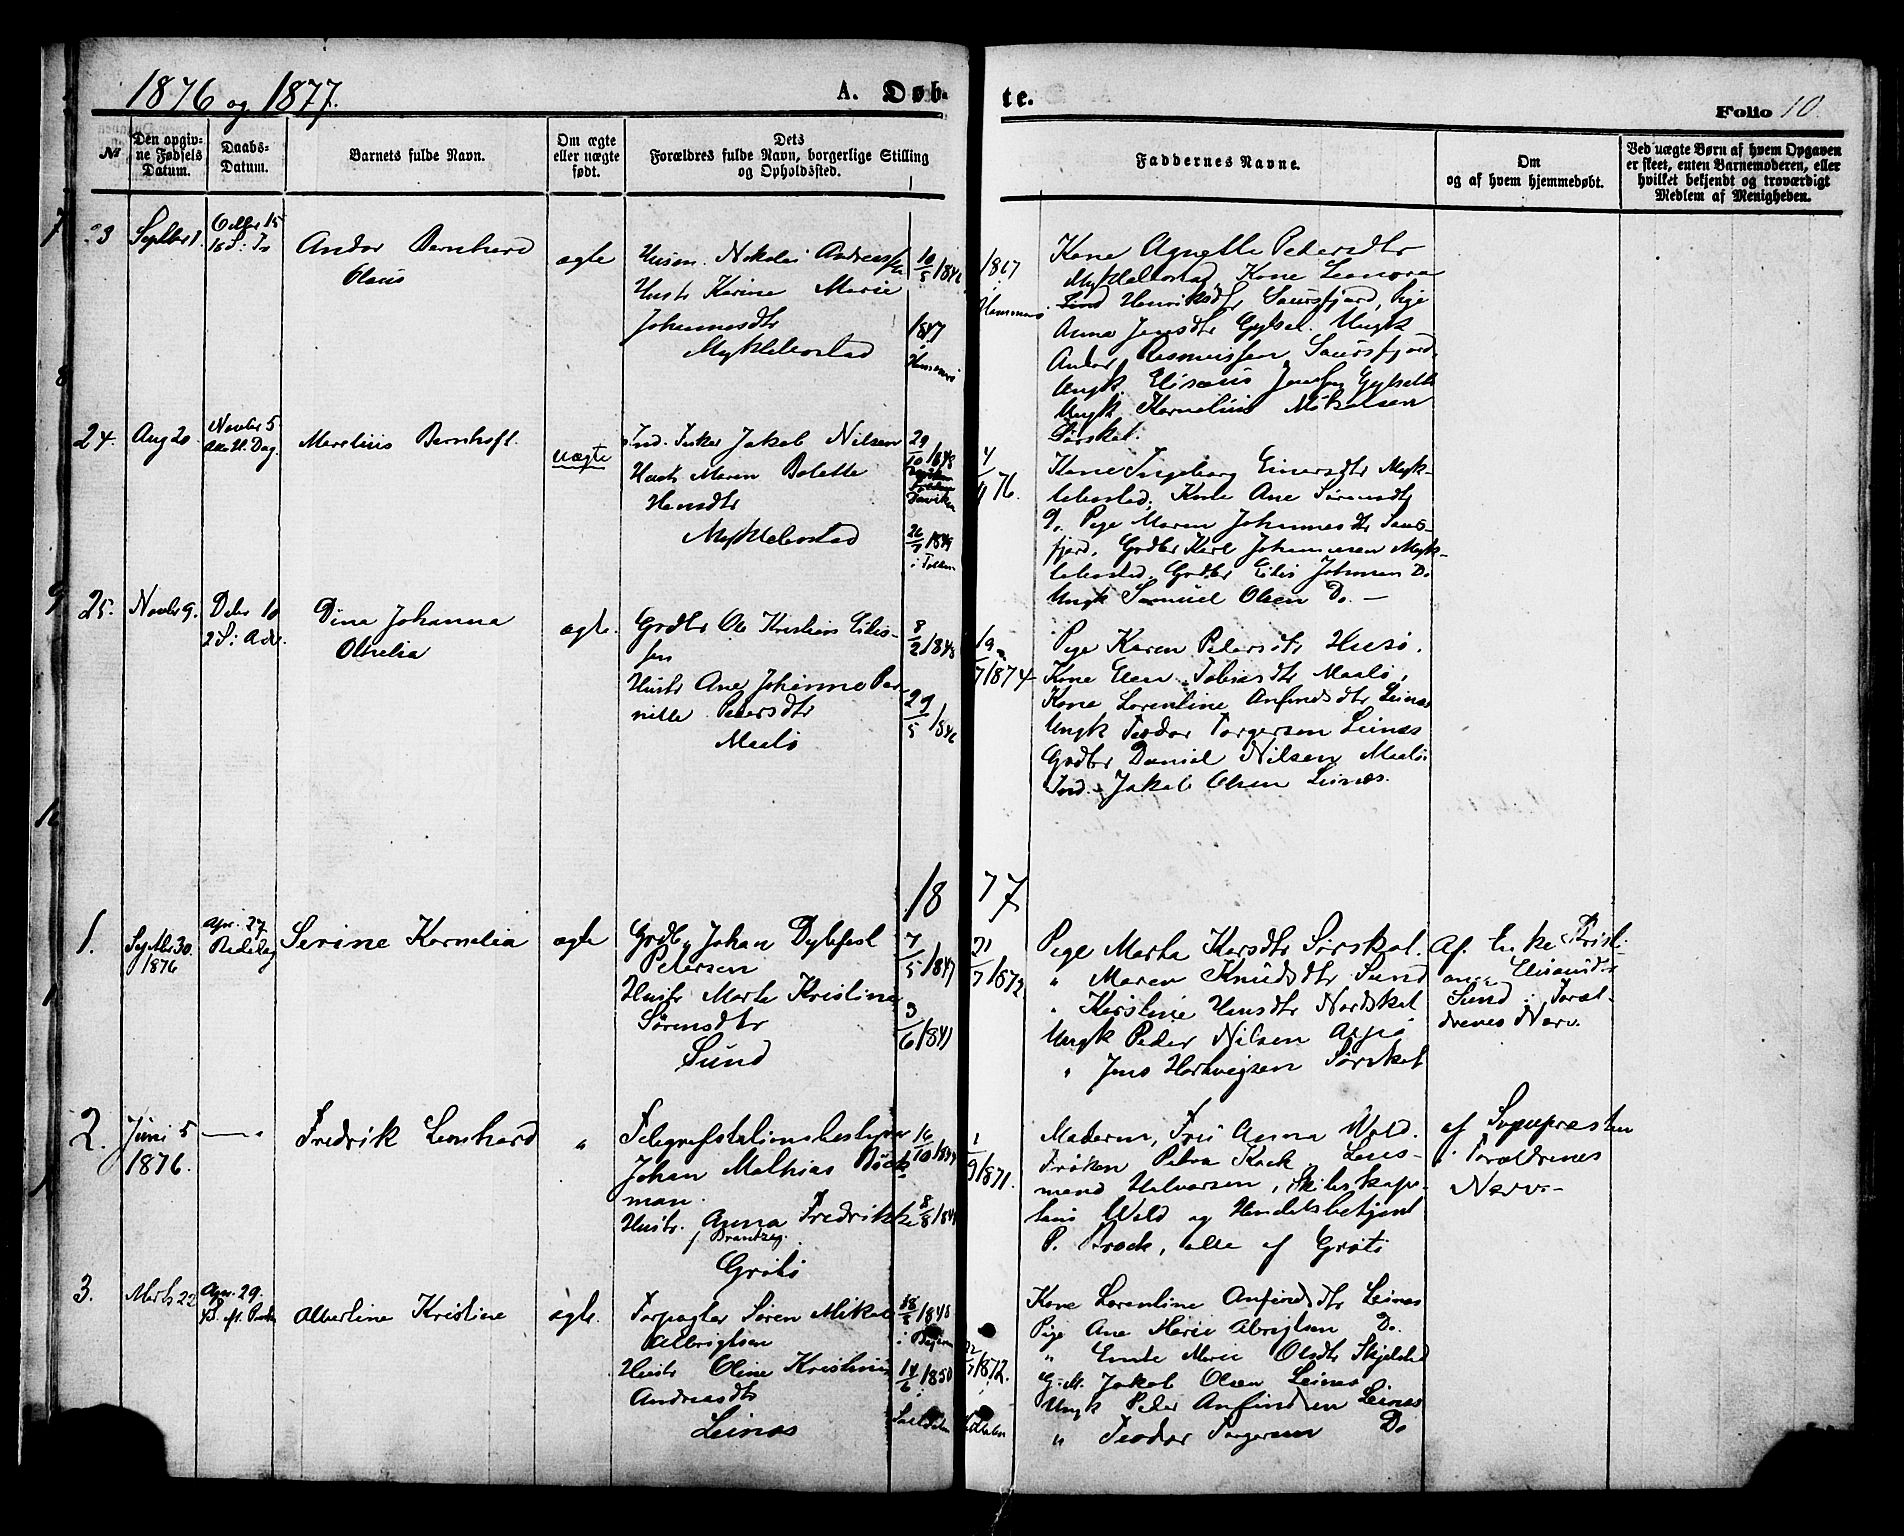 1876 og 1877.
A. Døb-
te.
Folio 10.
№
Den opgiv-
ne Fødsels
Datum.
Daabs-
Datum.
Barnets fulde Navn.
Om ægte
eller uægte
født.
Dets
Forældres fulde Navn, borgerlige Stilling
og Opholdssted.
Faddernes Navne.
Om
og af hvem hjemmedøbt.
Ved uægte Børn af hvem Opgaven
er skeet, enten Barnemoderen, eller
hvilket bekjendt og troværdigt
Medlem af Menigheden.
23
Septbr 1.
Octbr 15
Andor Bernhard
Olaus
ægte
Husm. Nikolai Andreassen
Hustr Karine Marie
Johannesdtr
Myklebostad
10/5 1846
1847
1867
Kone Agnette Pedersdtr
Myklebostad, Kone Leonora
Henriksdtr Saursfjord, Pige
Anna Jensdtr Gylset. Ungk
Andor Rasmussen Saursfjord.
Ungk. Elisæus Jensen Gylseth
Ungk Kornelius Mikelsen
Sørskot.
24.
Aug 20.
Novbr 5
Alle H. Dag.
Marelius Bernhoft.
uægte
Ind. Jakob Nilsen
Hustr Maren Bolette
Hansdtr
Myklebostad
29/10 1848
26/7 1849
4/4 76.
Kone Ingeborg Einarsdtr Myk-
lebostad. Kone Ane Sørensdtr
Do. Pige Maren Johannesdtr Saurs-
fjord. Grdbr Karl Johannesen Myk-
lebostad. Grdbr Eilis Johnsen Do.
Ungk Samuel Olsen Do. —
25.
Novbr 9.
Debr 10
2 S. i Adv.
Dina Johanna
Olnelia
ægte.
Grdbr Ole Kristian Eilis-
sen
Hustr Ane Johanna Per-
nille Pedersdtr
Maalø
8/2 1848
29/5 1846
19/7 1874
Pige Karen Pedersdtr Husø.
Kone Elen Tobiasdtr Maalø,
Kone Lorentine Anfindsdtr Leines
Ungk Teodor Torgersen Leines
Grdbr Daniel Nilsen Maalø.
Ind. Jakob Olsen Leines.
1877
1.
Septbr 30.
1876
Apr. 27
Bededag
Serine Kornelia
ægte
Grdb. Johan Dybfest
Petersen
Hustr Marte Kristine
Sørensdtr
Sund
7/5 1847
3/6 1841
21/7 1872
Pige Marta Karsdtr Sørskot.
" Maren Knudsdtr Sund
" Kirstine Hansdtr Nordskot
Ungk Peder Nilsen
" Jens Hartvigsen Sørskot
Af Enke Kristi-
ane
Sund i Foræl-
drenes Nærv.
2.
Juni 5
1876.
—"
Fredrik Leonhard
"
Telegrafstationsbestyrer
Johan Mathias Bøck-
man.
Hustr. Anna Fredrikke
f. Brantzeg.
Grøtø
8/8 1849
1/9 1871.
Moderen, Fru Anna Wold.
Frøken Petra Kock Lens-
mand Halvorsen, Stiftskape-
lan Wold og Handelsbetjent
P. Brock, alle af Grøtø
af Sognepræsten
i Forældrenes
Nærv.—
3.
Marts 22
Apr. 29.
Albertine Kristine
ægte.
Forpagter Søren Mikal
Albrigtsen
Hustr Oline Kristine
Andreasdtr
Leines
18/5 1848
14/6 1850
Saltdalen
1872.
Kone Lorentine Anfindsdtr Leines
Pige Ane Marie Albrigtsen Do.
" Emte Marie Olsdtr Skjelstad
G.M. Jakob Olsen Leines
Ungk Peder Anfindsen Leines
" Teodor Torgersen Do